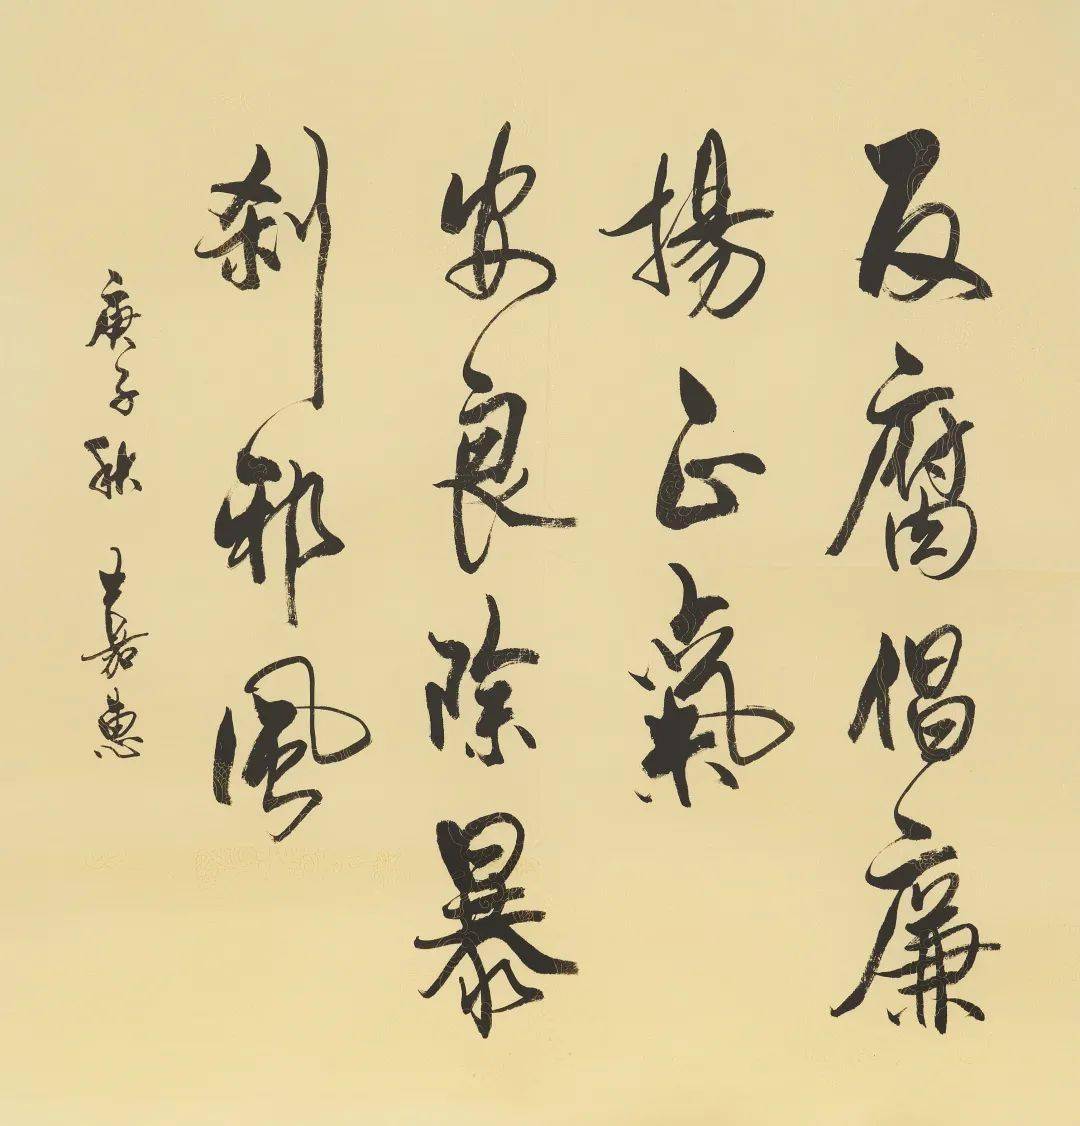 反腐倡廉
揚正氣
安良除暴
刹邪風
庚子秋 嘉惠